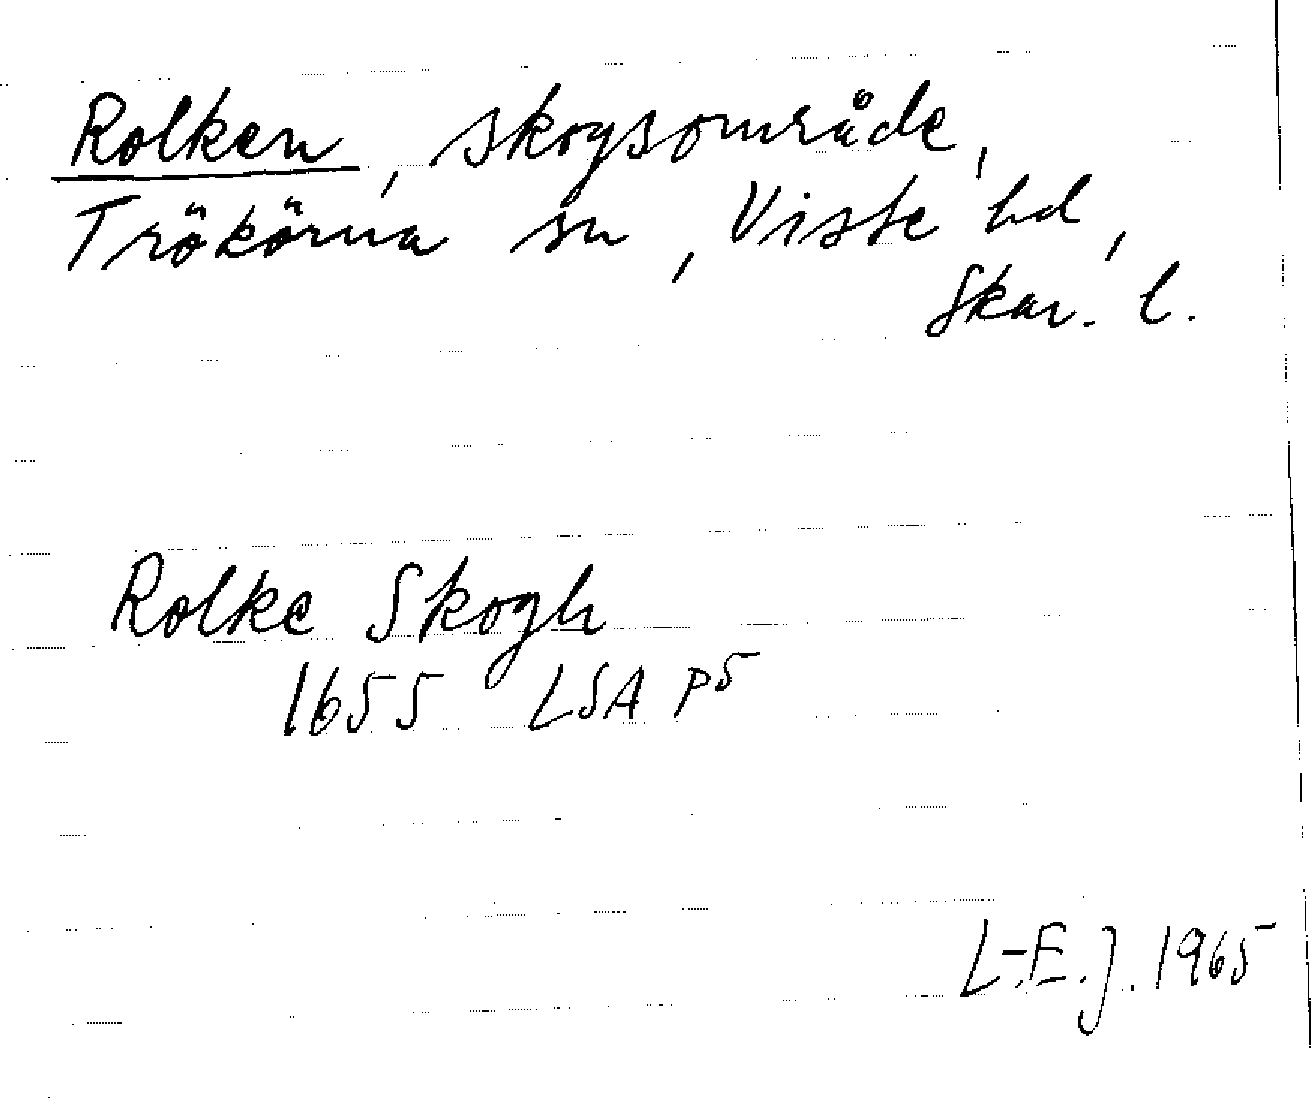 Rolken, skogsområde,
Trökörna sn, Viste hd,
Skar. l.
Rolke Skogh
1655 LSA P5
L-E.J. 1965